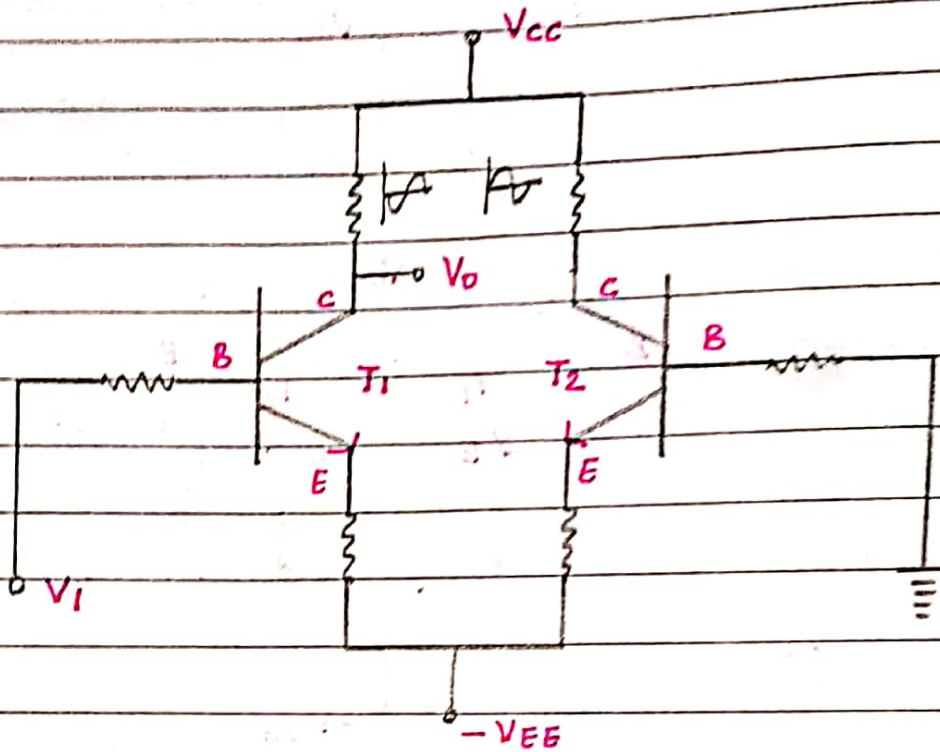 VCC
VO
C C
B B
T1 T2
E E
V1
-VEE